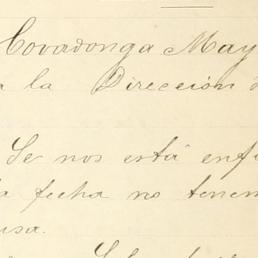 Covadonga May
a la Direccion d
Se nos está enf
la fecha no tenem
usa.